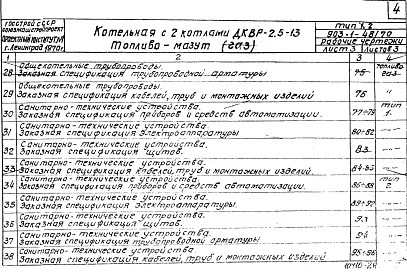 4
ГОССТРОЙ СССР
СОЮЗМАШСТРОЙПРОЕКТ
ПРОЕКТНЫЙ ИНСТИТУТ
г. Ленинград 1970г.
Котельная с 2 котлами ДКВР-2.5-13
Топливо-мазут (газ)
тип 1,2
903-1-48/70
рабочие чертежи
лист 3 листов 3
1 2 3 4
28 Общекотельные трубопроводы.
Заказная спецификация трубопроводной арматуры 75 топливо газ
29 Общекотельные трубопроводы.
Заказная спецификация кабелей, труб и монтажных изделий 76 "
30 Санитарно-технические устройства.
Заказная спецификация приборов и средств автоматизации. 77÷79 тип 1.
31 Санитарно-технические устройства.
Заказная спецификация электроаппаратуры 80-82
32 Санитарно-технические устройства.
Заказная спецификация щитов. 83
33 Санитарно-технические устройства.
Заказная спецификация кабелей, труб и монтажных изделий. 84-85
34 Санитарно-технические устройства.
Заказная спецификация приборов и средств автоматизации. 86-88 тип 2.
35 Санитарно-технические устройства.
Заказная спецификация электроаппаратуры.
36 Санитарно-технические устройства.
Заказная спецификация щитов. 93
37 Санитарно-технические устройства.
Заказная спецификация трубопроводной арматуры 94
38 Санитарно-технические устройства.
Заказная спецификация кабелей, труб и монтажных изделий 95-96